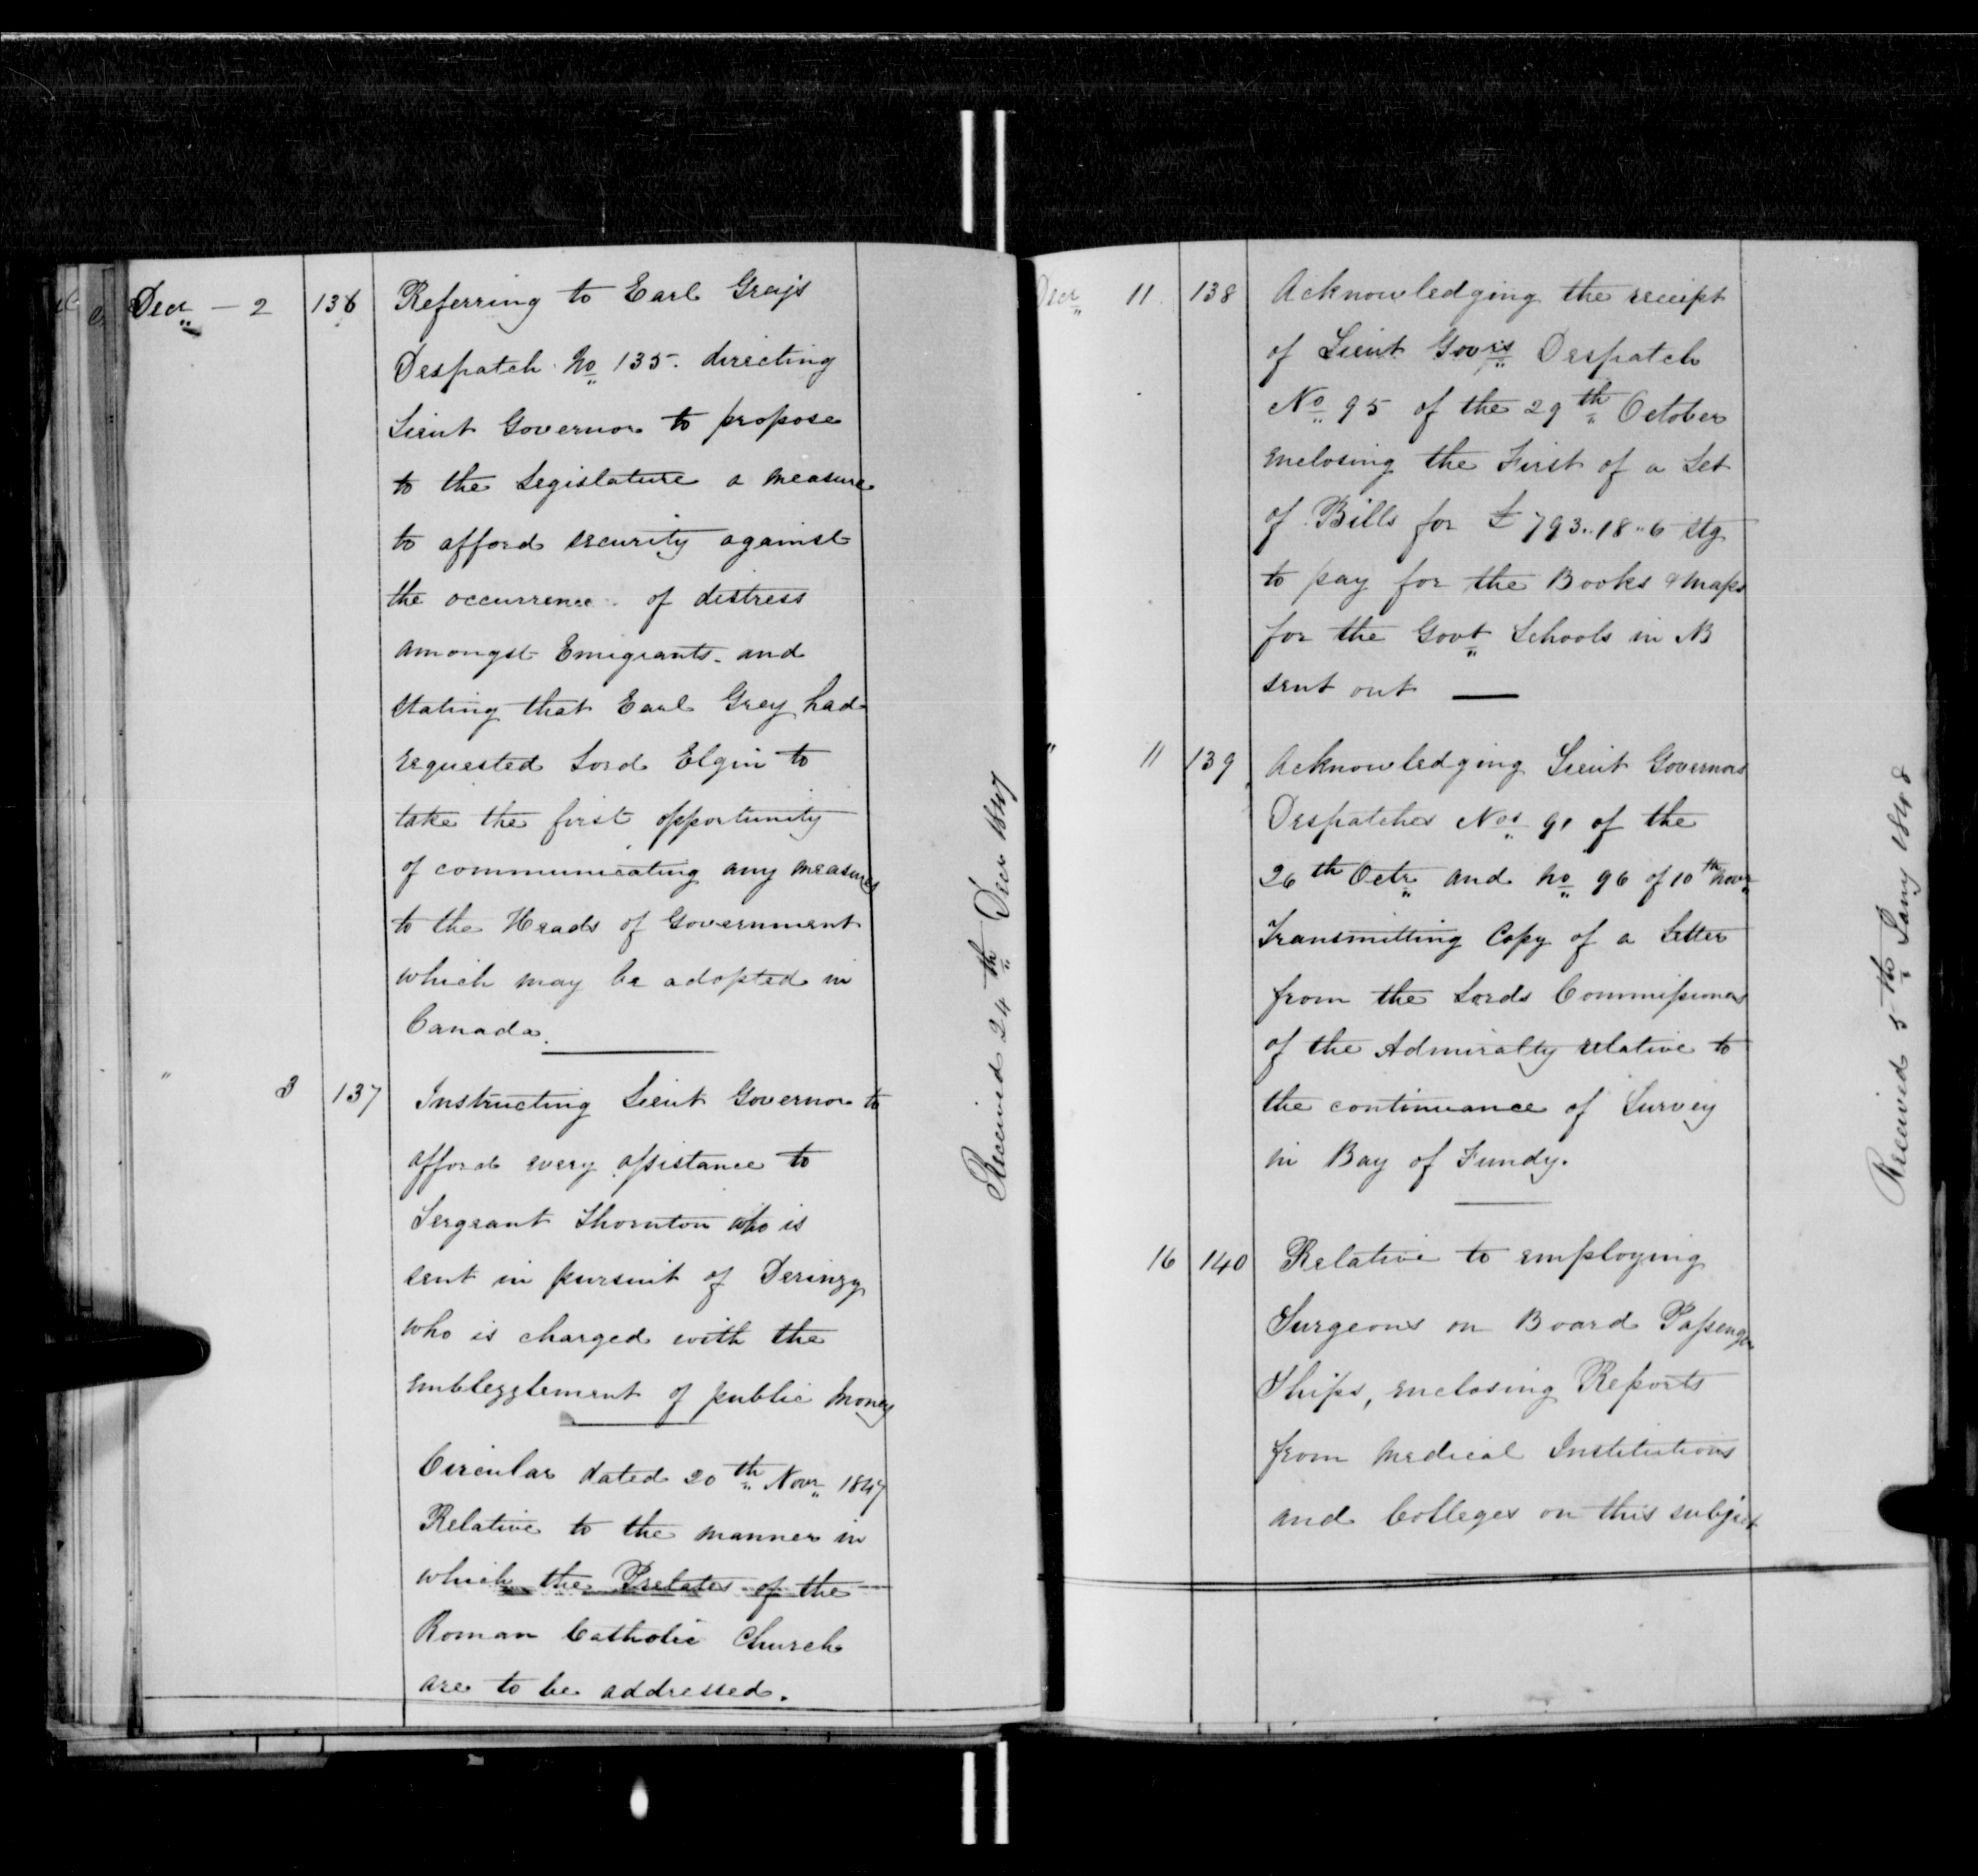 Decr - 2 136 Referring to Earl Grey's
Despatch No 135. directing
Lieut Governor to propose
to the Legislature a measure
to afford security against
the occurrence of distress
amongst Emigrants. and
stating that Earl Grey had
requested Lord Elgin to
take the first opportunity
of communicating any measures
to the Heads of Government
which may be adopted in
Canada.
" 3 137 Instructing Lieut Governor to
afford every assistance to
Sergeant Thornton who is
sent in pursuit of Deringy
who is charged with the
emblezzlement of public money
Circular dated 20th Novr 1847
Relative to the manner in
which the Prelates of the
Roman Catholic Church
are to be addressed.
Received 24th Decr 1847
Decr 11 138 Acknowledging the receipt
of Lieut Govrs Despatch
No 95 of the 29th October
enclosing the First of a Set
of Bills for £793..18..6 Stg
to pay for the Books & Maps
for the Govt Schools in NB
sent out —
" 11 139 Acknowledging Lieut Governors
Despatches Nos 91 of the
26th Octr and No 96 of 10th Novr
Transmitting Copy of a Letter
from the Lords Commissioners
of the Admiralty relative to
the continuance of Survey
in Bay of Fundy.
16 140 Relative to employing
Surgeons on Board Passenger
Ships, enclosing Reports
from Medical Institutions
and Colleges on this subject
Received 5th Jany 1848